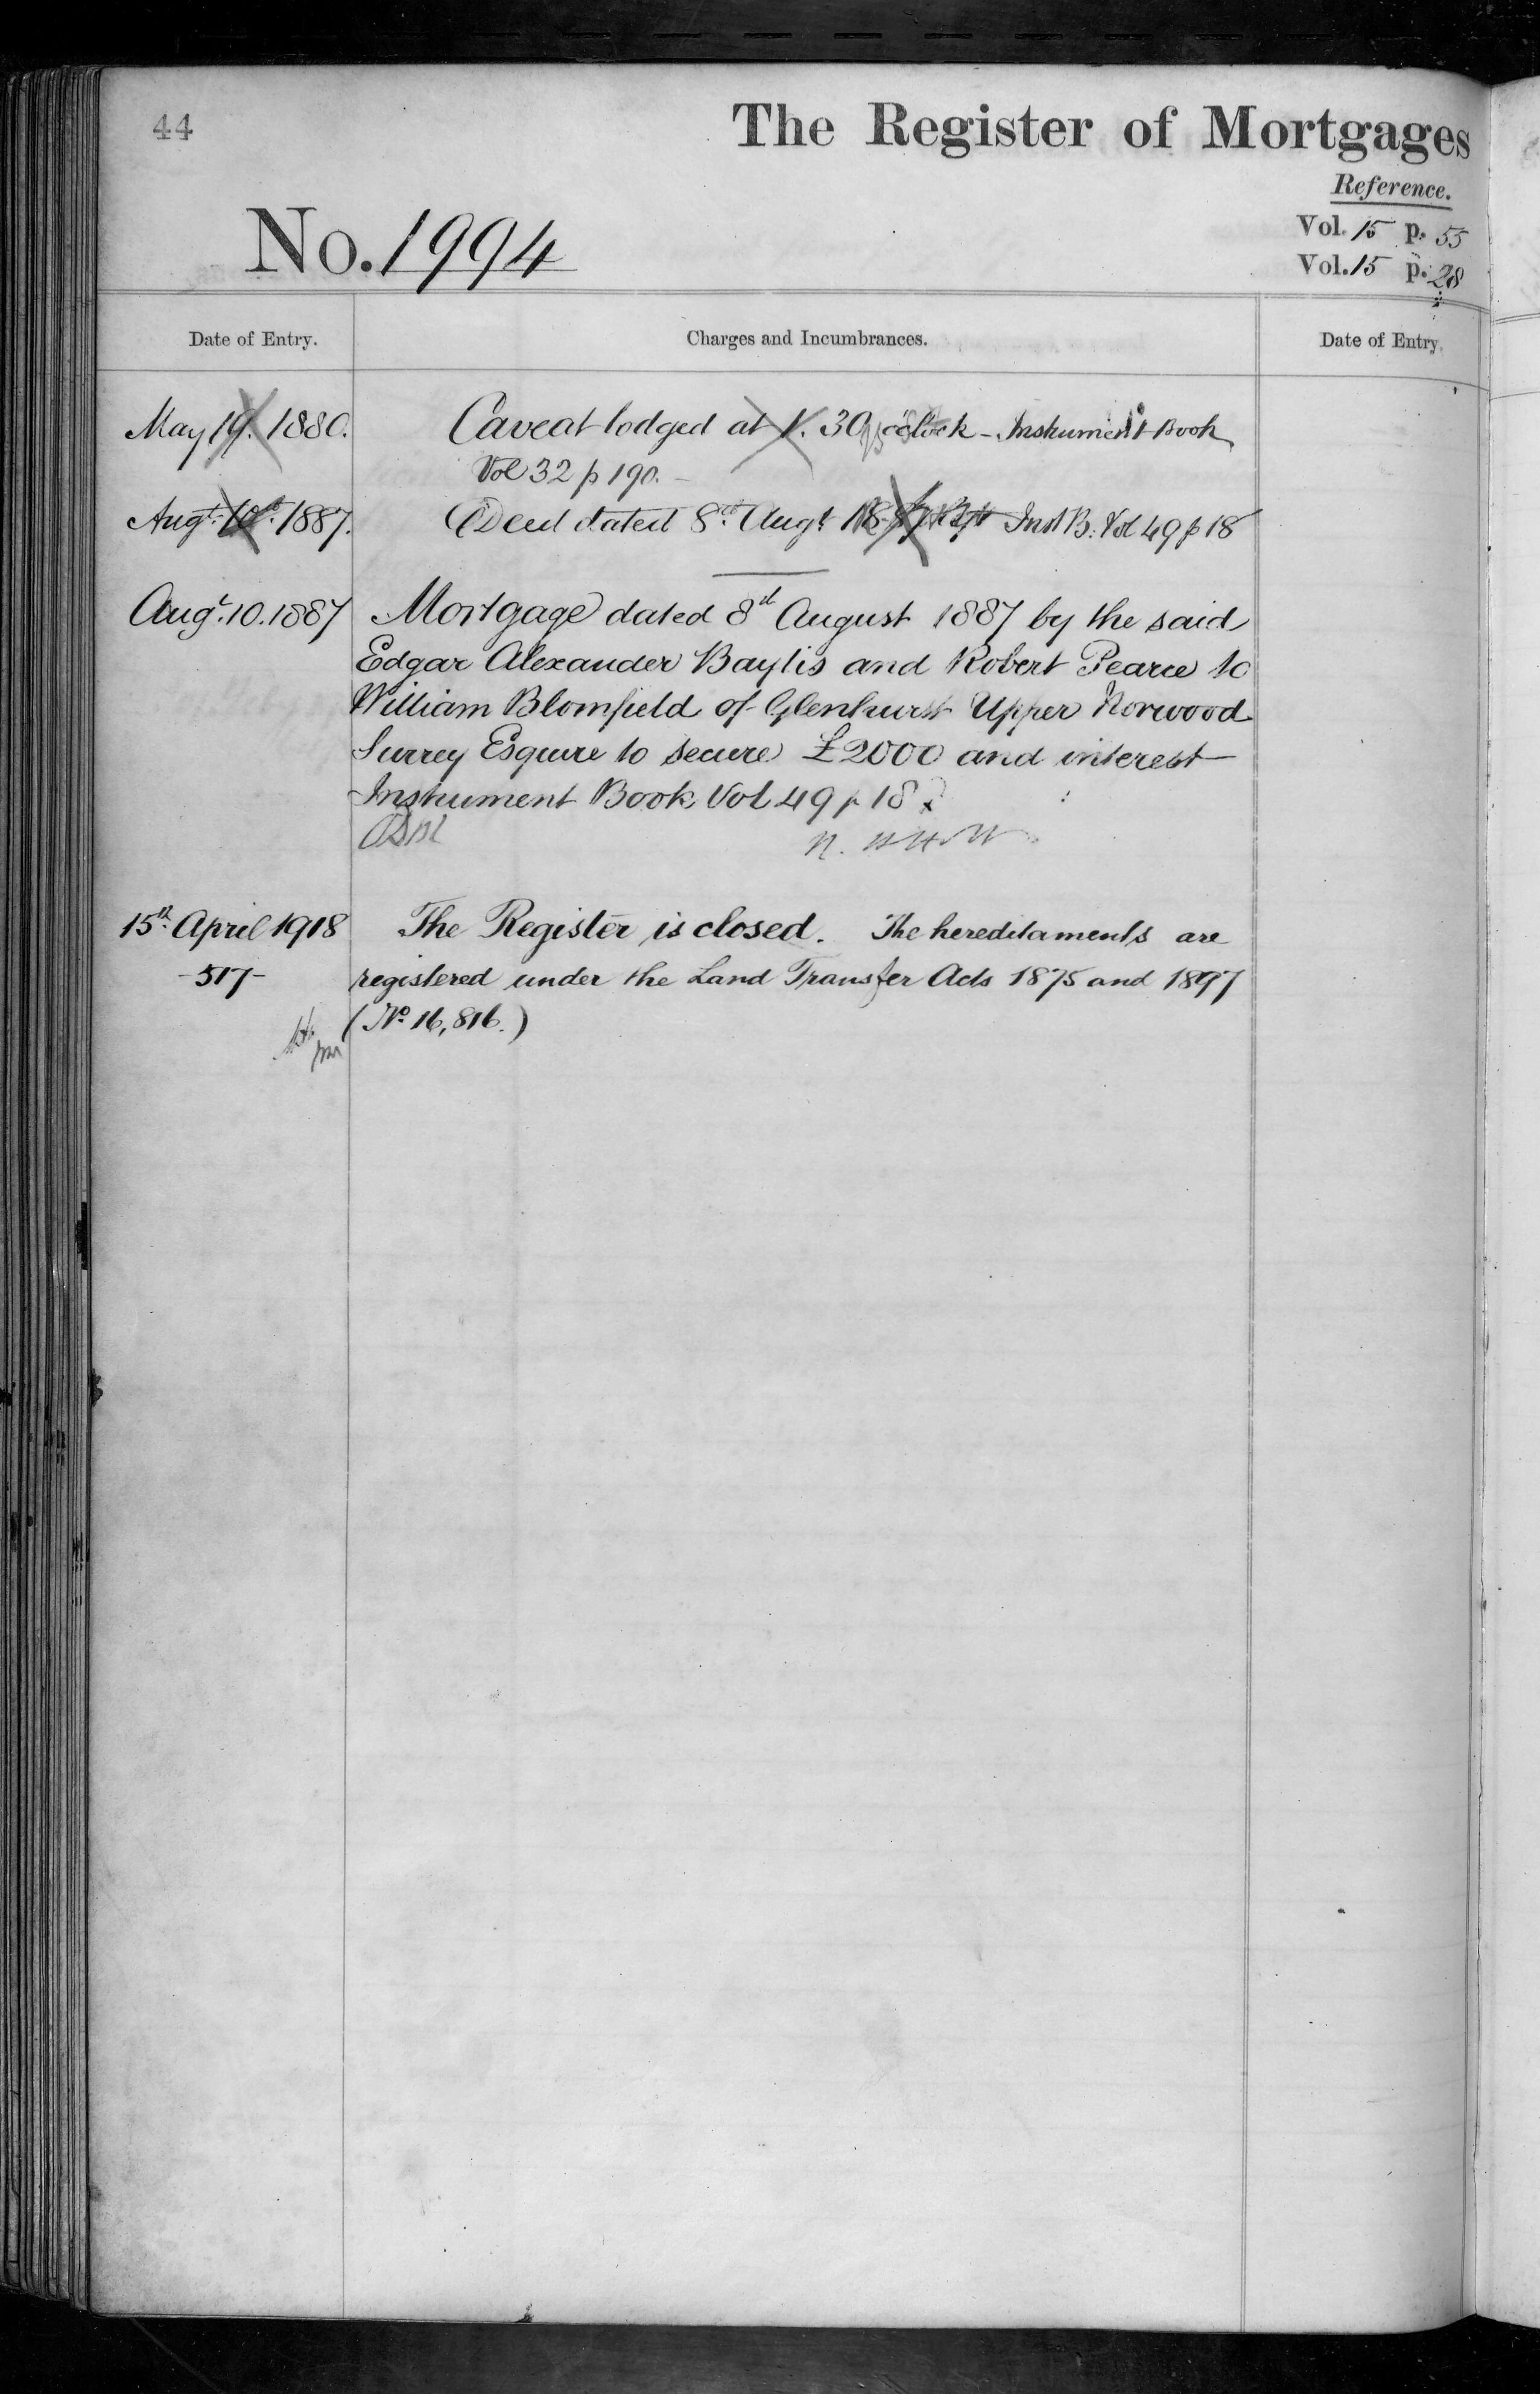 44
The Register of Mortgages
Reference.
No. 1994
Vol. 15 p. 55
Vol. 15 p. 28
Date of Entry.
Charges and Incumbrances.
Date of Entry.
May 19. 1880.
Caveat lodged at 1.30 o'clock - Instrument Book
Vol 32 p 190. -
Augt. 10th. 1887.
Deed dated 8th Augt Inst B: Vol 49 p 18
Augt. 10. 1887
Mortgage dated 8th August 1887 by the said
Edgar Alexander Baylis and Robert Pearce to
William Blomfield of Glenhurst Upper Norwood
Surrey Esquire to secure £2000 and interest
Instrument Book Vol 49 p 18
15th April 1918
The Register is closed. The hereditaments are
-517-
registered under the Land Transfer Acts 1875 and 1897
(No 16,816.)